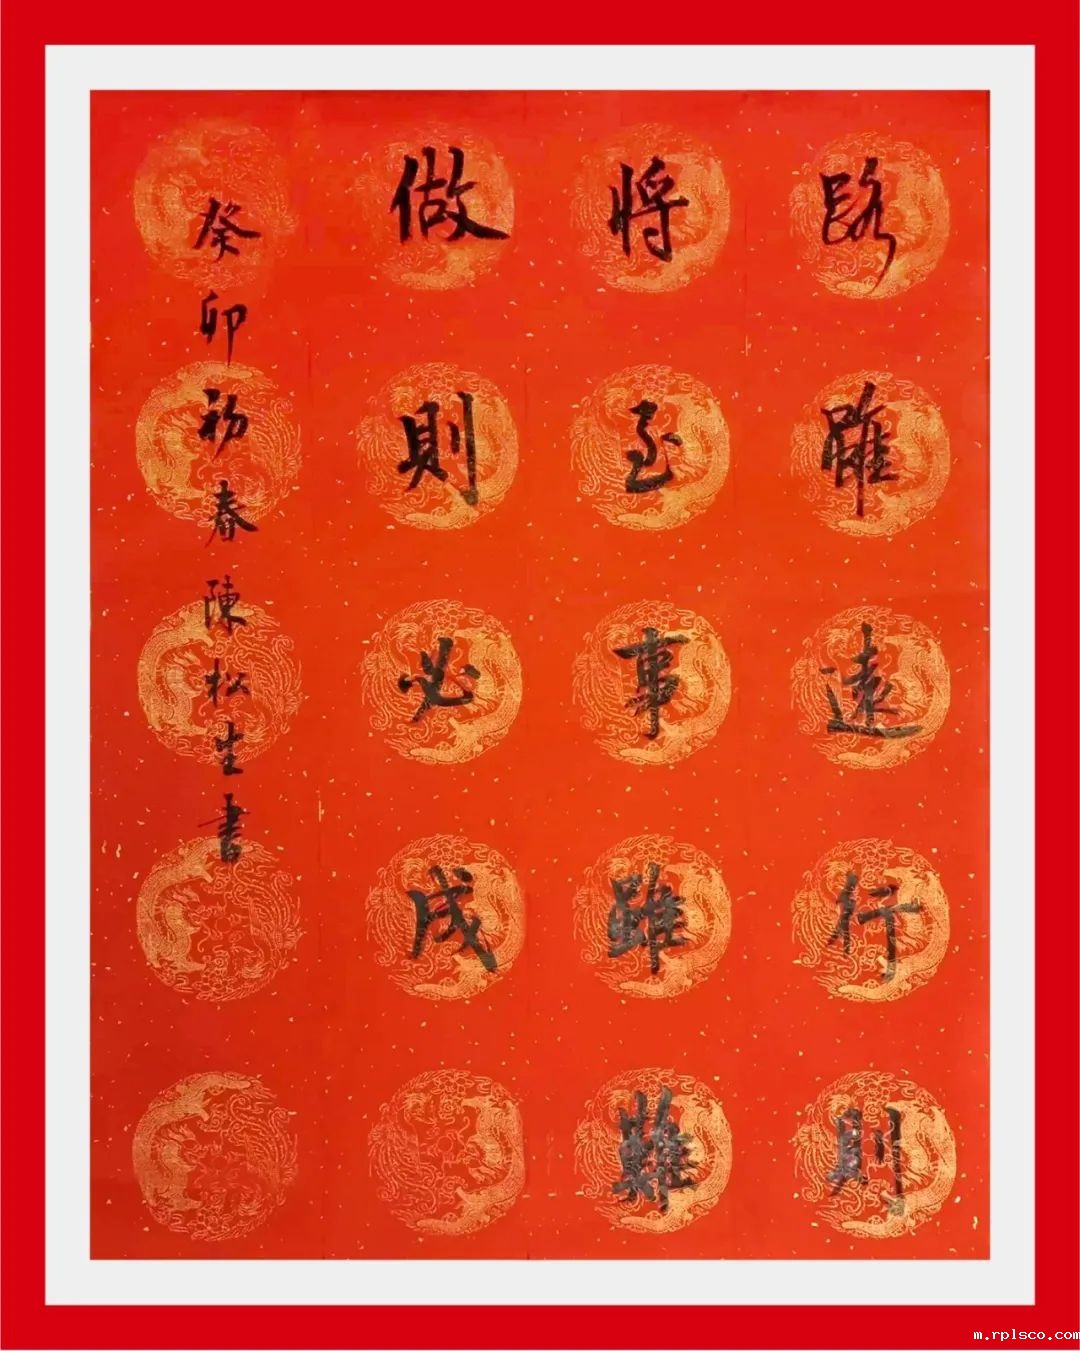 路雖遠行則
将至事雖難
做則必成
癸卯初春陳松生書
m.rplsco.com